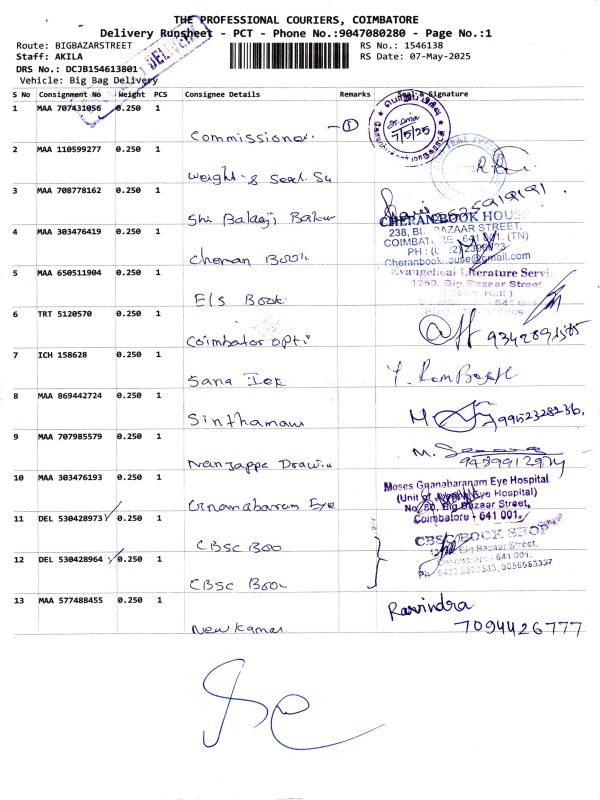 THE PROFESSIONAL COURIERS, COIMBATORE
Delivery Runsheet - PCT - Phone No.:9047080280 - Page No.:1
Route: BIGBAZARSTREET
RS No.: 1546138
Staff: AKILA
RS Date: 07-May-2025
DRS No.: DCJB154613801
Vehicle: Big Bag Delivery
S No Consignment No Weight PCS Consignee Details Remarks Seal & Signature
1 MAA 707431056 0.250 1
Commissioner. - 1
7/5/25
2 MAA 110599277 0.250 1
Weight & Seal. Su
3 MAA 708778162 0.250 1
Shri Balaji Baker
4 MAA 303476419 0.250 1
Cheran Book
CHERAN BOOK HOUSE
238, BIG BAZAAR STREET,
COIMBATORE - 641 001. (TN)
Cheranbookhouse@gmail.com
5 MAA 650511904 0.250 1
E/S Book
Evangelical Literature Servi
1250, Big Bazaar Street
(Town Hall)
6 TRT 5120570 0.250 1
Coimbator opti
7 ICH 158628 0.250 1
Sana Tek
8 MAA 869442724 0.250 1
Sinthamani
9 MAA 707985579 0.250 1
Nanjappa Drawin
M.
10 MAA 303476193 0.250 1
Gnanabaram Eye
Moses Gnanabaranam Eye Hospital
(Unit of Eye Hospital)
Big Bazaar Street,
Coimbatore - 641 001.
11 DEL 530428973 0.250 1
CBSC Boo
CBSC BOOK SHOP
Big Bazaar Street,
Coimbatore - 641 001.
12 DEL 530428964 0.250 1
CBSC Book
13 MAA 577488455 0.250 1
New Kamar
Ravindra
7094426777